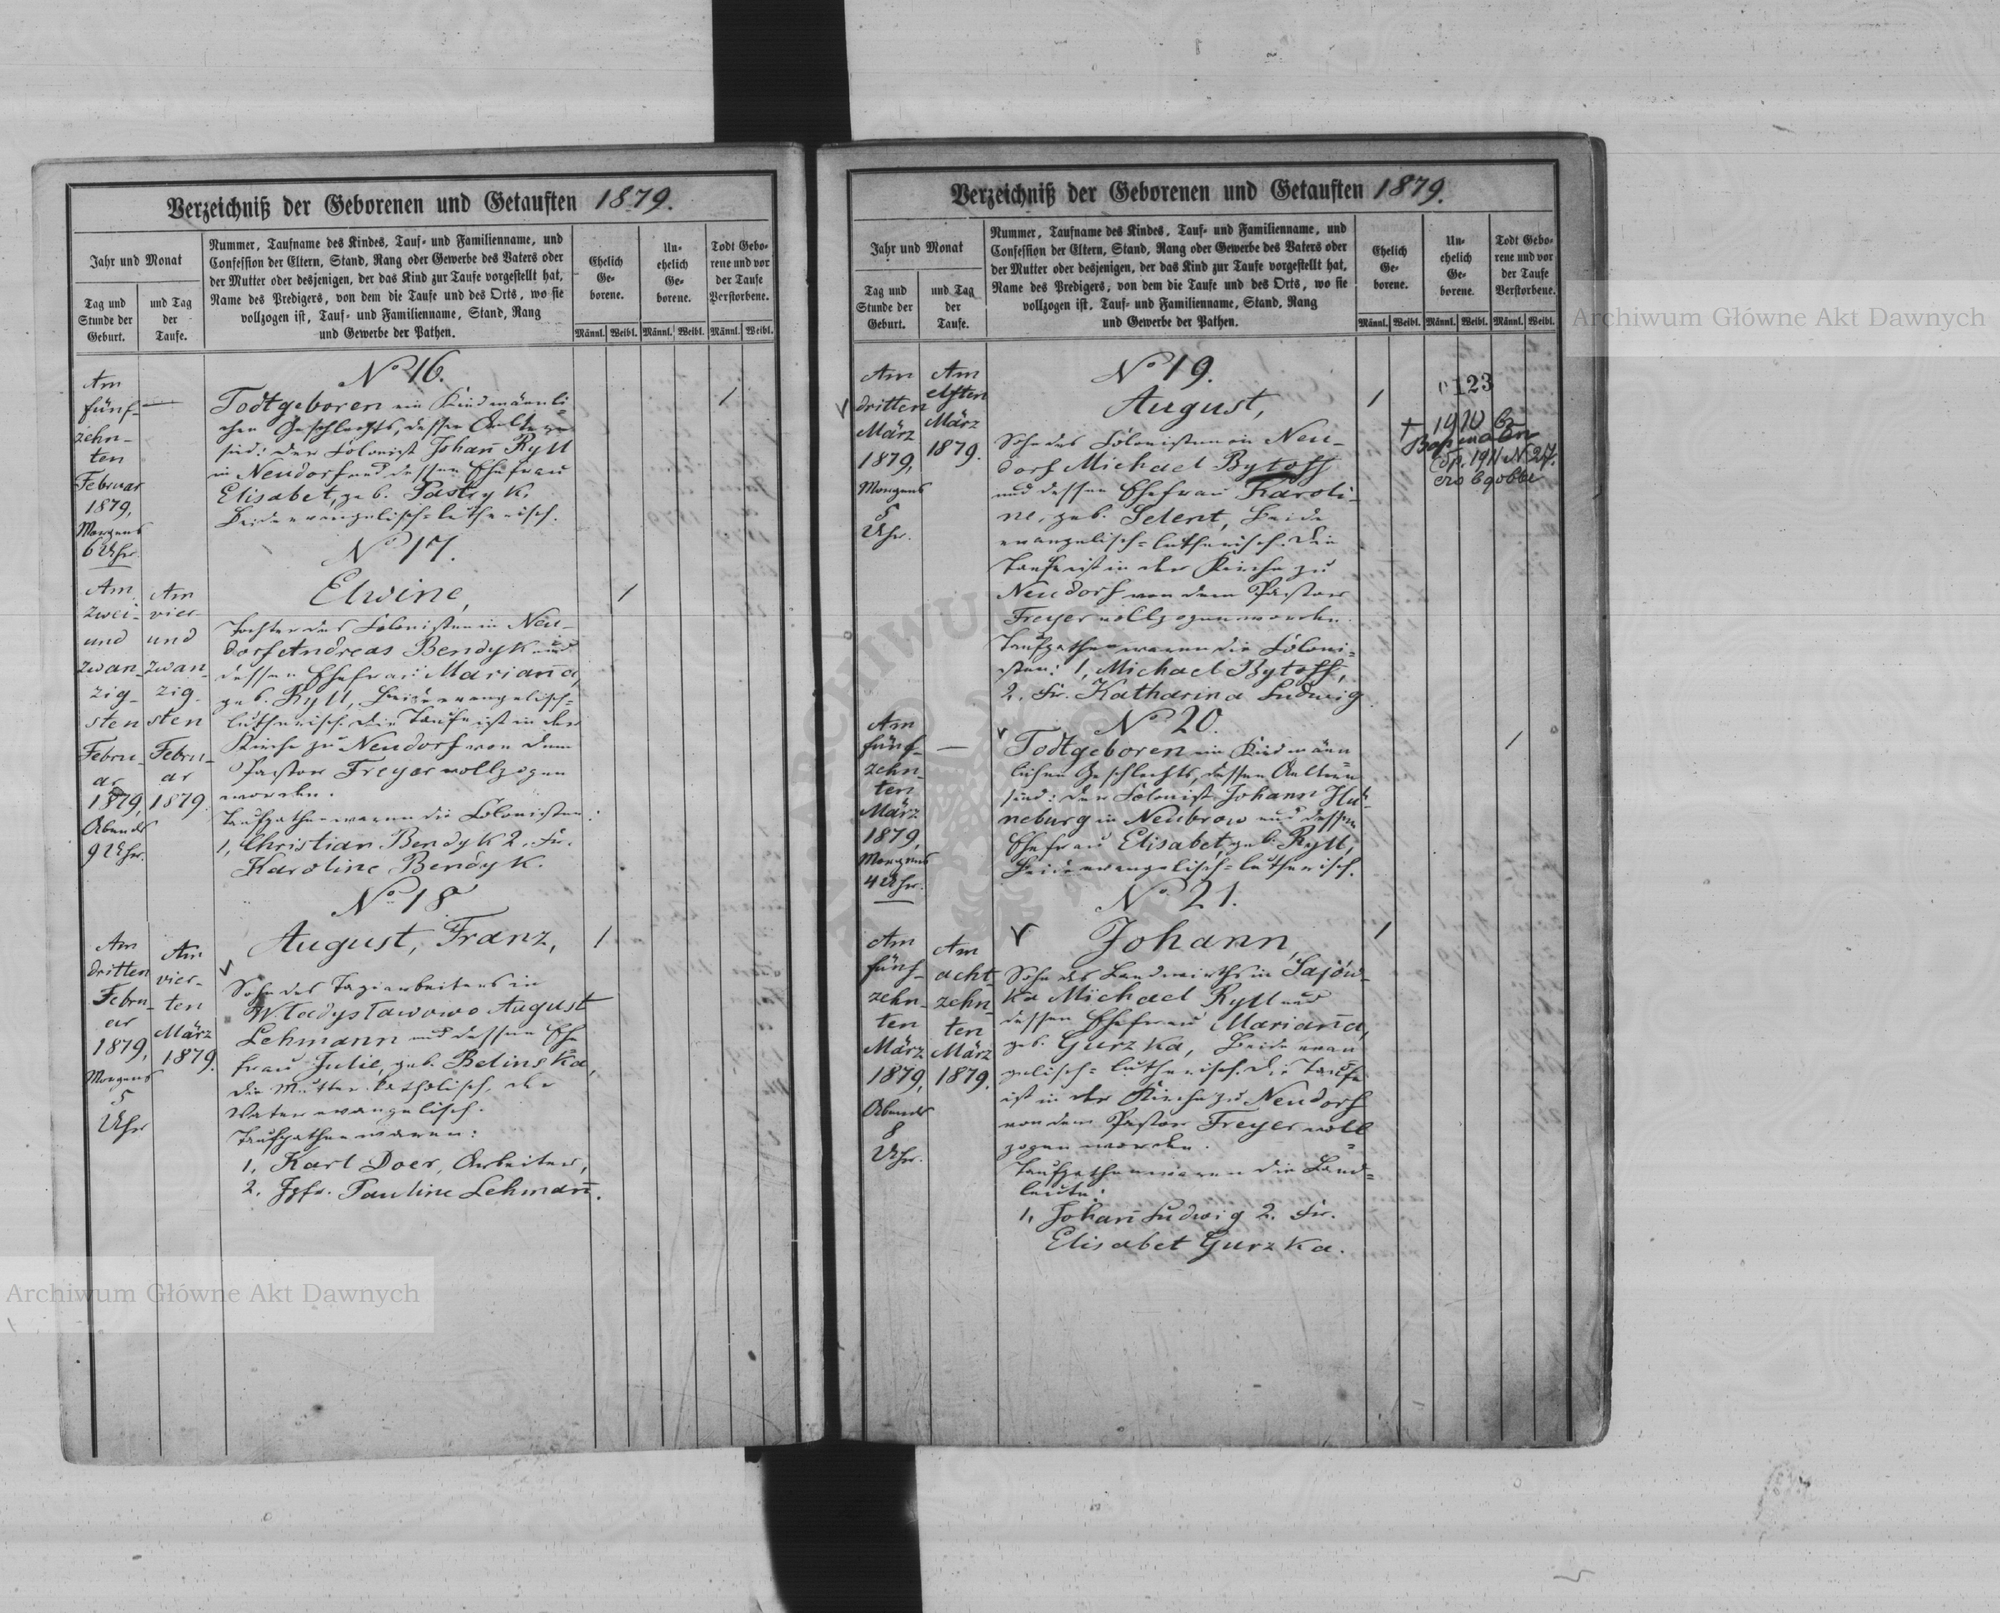 Verzeichniß der Geborenen und Getauften 1879.
Jahr und Monat
Tag und
Stunde der
Geburt.
und Tag
der
Taufe.
Nummer, Taufname des Kindes, Tauf- und Familienname, und
Confession der Eltern, Stand, Rang oder Gewerbe des Vaters oder
der Mutter oder desjenigen, der das Kind zur Taufe vorgestellt hat,
Name des Predigers, von dem die Taufe und des Orts, wo sie
vollzogen ist, Tauf- und Familienname, Stand, Rang
und Gewerbe der Pathen.
Ehelich
Ge-
borene.
Un-
ehelich
Ge-
borene.
Todt Gebo-
rene und vor
der Taufe
Verstorbene.
Männl. Weibl. Männl. Weibl. Männl. Weibl.
Am
fünf-
zehn-
ten
Februar
1879,
Morgens
6 Uhr.
No 16.
Todtgeboren ein Kind männli-
chen Geschlechts, dessen Aeltern
sind: der Colonist Johañ Ryll
in Neudorf und dessen Ehefrau
Elisabet, geb. Pastryk.
Beide evangelisch-lutherisch.
1
Am
zwei-
und
zwan-
zig-
sten
Febru-
ar
1879,
Abends
9 Uhr.
Am
vier-
und
zwan-
zig-
sten
Febru-
ar
1879.
No 17.
Elwine,
Tochter des Colonisten in Neu-
dorf Andreas Bendyk und
dessen Ehefrau Mariañа,
geb. Ryll, Beide evangelisch-
lutherisch. Die Taufe ist in der
Kirche zu Neudorf von dem
Pastor Freyer vollzogen
worden.
Taufpathen waren die Colonisten:
1, Christian Bendyk 2. Fr.
Karoline Bendyk.
1
Am
dritten
Febru-
ar
1879,
Morgens
5
Uhr
Am
vier-
ten
März
1879.
No 18
August, Franz,
Sohn des Tagearbeiters in
Władysławowo August
Lehmann und dessen Ehe
frau Julie, geb. Belinska,
die Mutter katholisch, der
Vater evangelisch.
Taufpathen waren:
1, Karl Doer, Arbeiter,
2. Jgfr. Pauline Lehmañ.
1
Verzeichniß der Geborenen und Getauften 1879.
Jahr und Monat
Tag und
Stunde der
Geburt.
und Tag
der
Taufe.
Nummer, Taufname des Kindes, Tauf- und Familienname, und
Confession der Eltern, Stand, Rang oder Gewerbe des Vaters oder
der Mutter oder desjenigen, der das Kind zur Taufe vorgestellt hat,
Name des Predigers, von dem die Taufe und des Orts, wo sie
vollzogen ist, Tauf- und Familienname, Stand, Rang
und Gewerbe der Pathen.
Ehelich
Ge-
borene.
Un-
ehelich
Ge-
borene.
Todt Gebo-
rene und vor
der Taufe
Verstorbene.
Männl. Weibl. Männl. Weibl. Männl. Weibl.
Am
dritten
März
1879,
Morgens
5
Uhr.
Am
elften
März
1879.
No 19.
August,
Sohn des Colonisten in Neu-
dorf Michael Bytoff
und dessen Ehefrau Karoli-
ne, geb. Selent, Beide
evangelisch-lutherisch. Die
Taufe ist in der Kirche zu
Neudorf von dem Pastor
Freyer vollzogen worden.
Taufpathen waren die Coloni-
sten: 1, Michael Bytoff,
2. Fr. Katharina Ludwig.
1
123
Am
fünf-
zehn-
ten
März
1879,
Morgens
4 Uhr.
No 20.
Todtgeboren ein Kind männ
lichen Geschlechts, dessen Aeltern
sind: der Colonist Johann Hü-
neburg in Neubrow und dessen
Ehefrau Elisabet, geb. Ryll,
Beide evangelisch-lutherisch.
1
Am
fünf-
zehn-
ten
März
1879,
Abends
8
Uhr.
Am
acht-
zehn-
ten
März
1879.
No 21.
Johann,
Sohn des Landwirths in Sajów-
ka Michael Ryll und
dessen Ehefrau Mariañа,
geb. Gurzka, Beide evan
gelisch-lutherisch. Die Taufe
ist in der Kirche zu Neudorf
von dem Pastor Freyer voll
zogen worden.
Taufpathen waren die Land-
leute:
1, Johañ Ludwig 2. Fr.
Elisabet Gurzka.
1
Archiwum Główne Akt Dawnych
Archiwum Główne Akt Dawnych